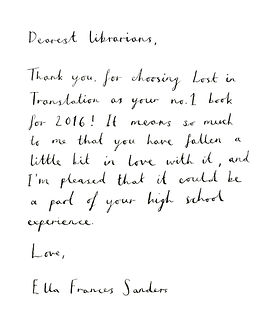 Dearest Librarians,
Thank you, for choosing Lost in
Translation as your no.1 book
for 2016! It means so much
to me that you have fallen a
little bit in love with it, and
I'm pleased that it could be
a part of your high school
experience.
Love,
Ella Frances Sanders